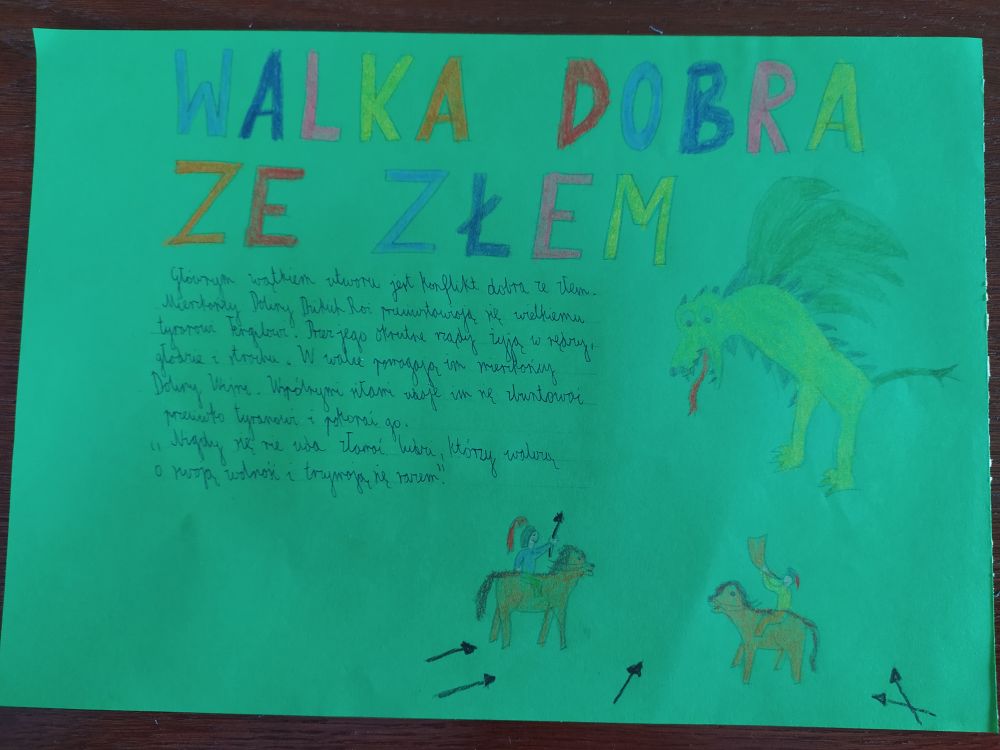 WALKA DOBRA
ZE ZŁEM
Głównym wątkiem utworu jest konflikt dobra ze złem.
Mieszkańcy Doliny Dzikich Róż przeciwstawiają się wielkiemu
tyranowi Tengilowi. Przez jego okrutne rządy żyją w nędzy,
głodzie i strachu. W walce pomagają im mieszkańcy
Doliny Wiśni. Wspólnymi siłami udaje im się zbuntować
przeciwko tyranowi i pokonać go.
„Nigdy się nie uda złamać ludzi, którzy walczą
o swoją wolność i trzymają się razem"